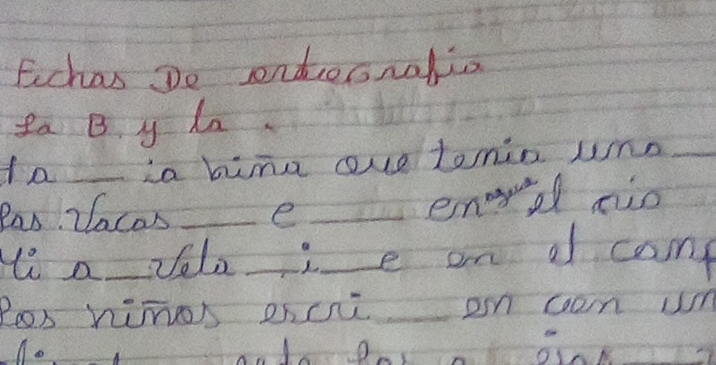 Fichas De ortrografia
La B y la .
Ha __ ia niña que tenia una __
Las Vacas __ e __ en agua el rio
Mi a __ uela __ i __ e en el camp
Los niños escri __ en con un